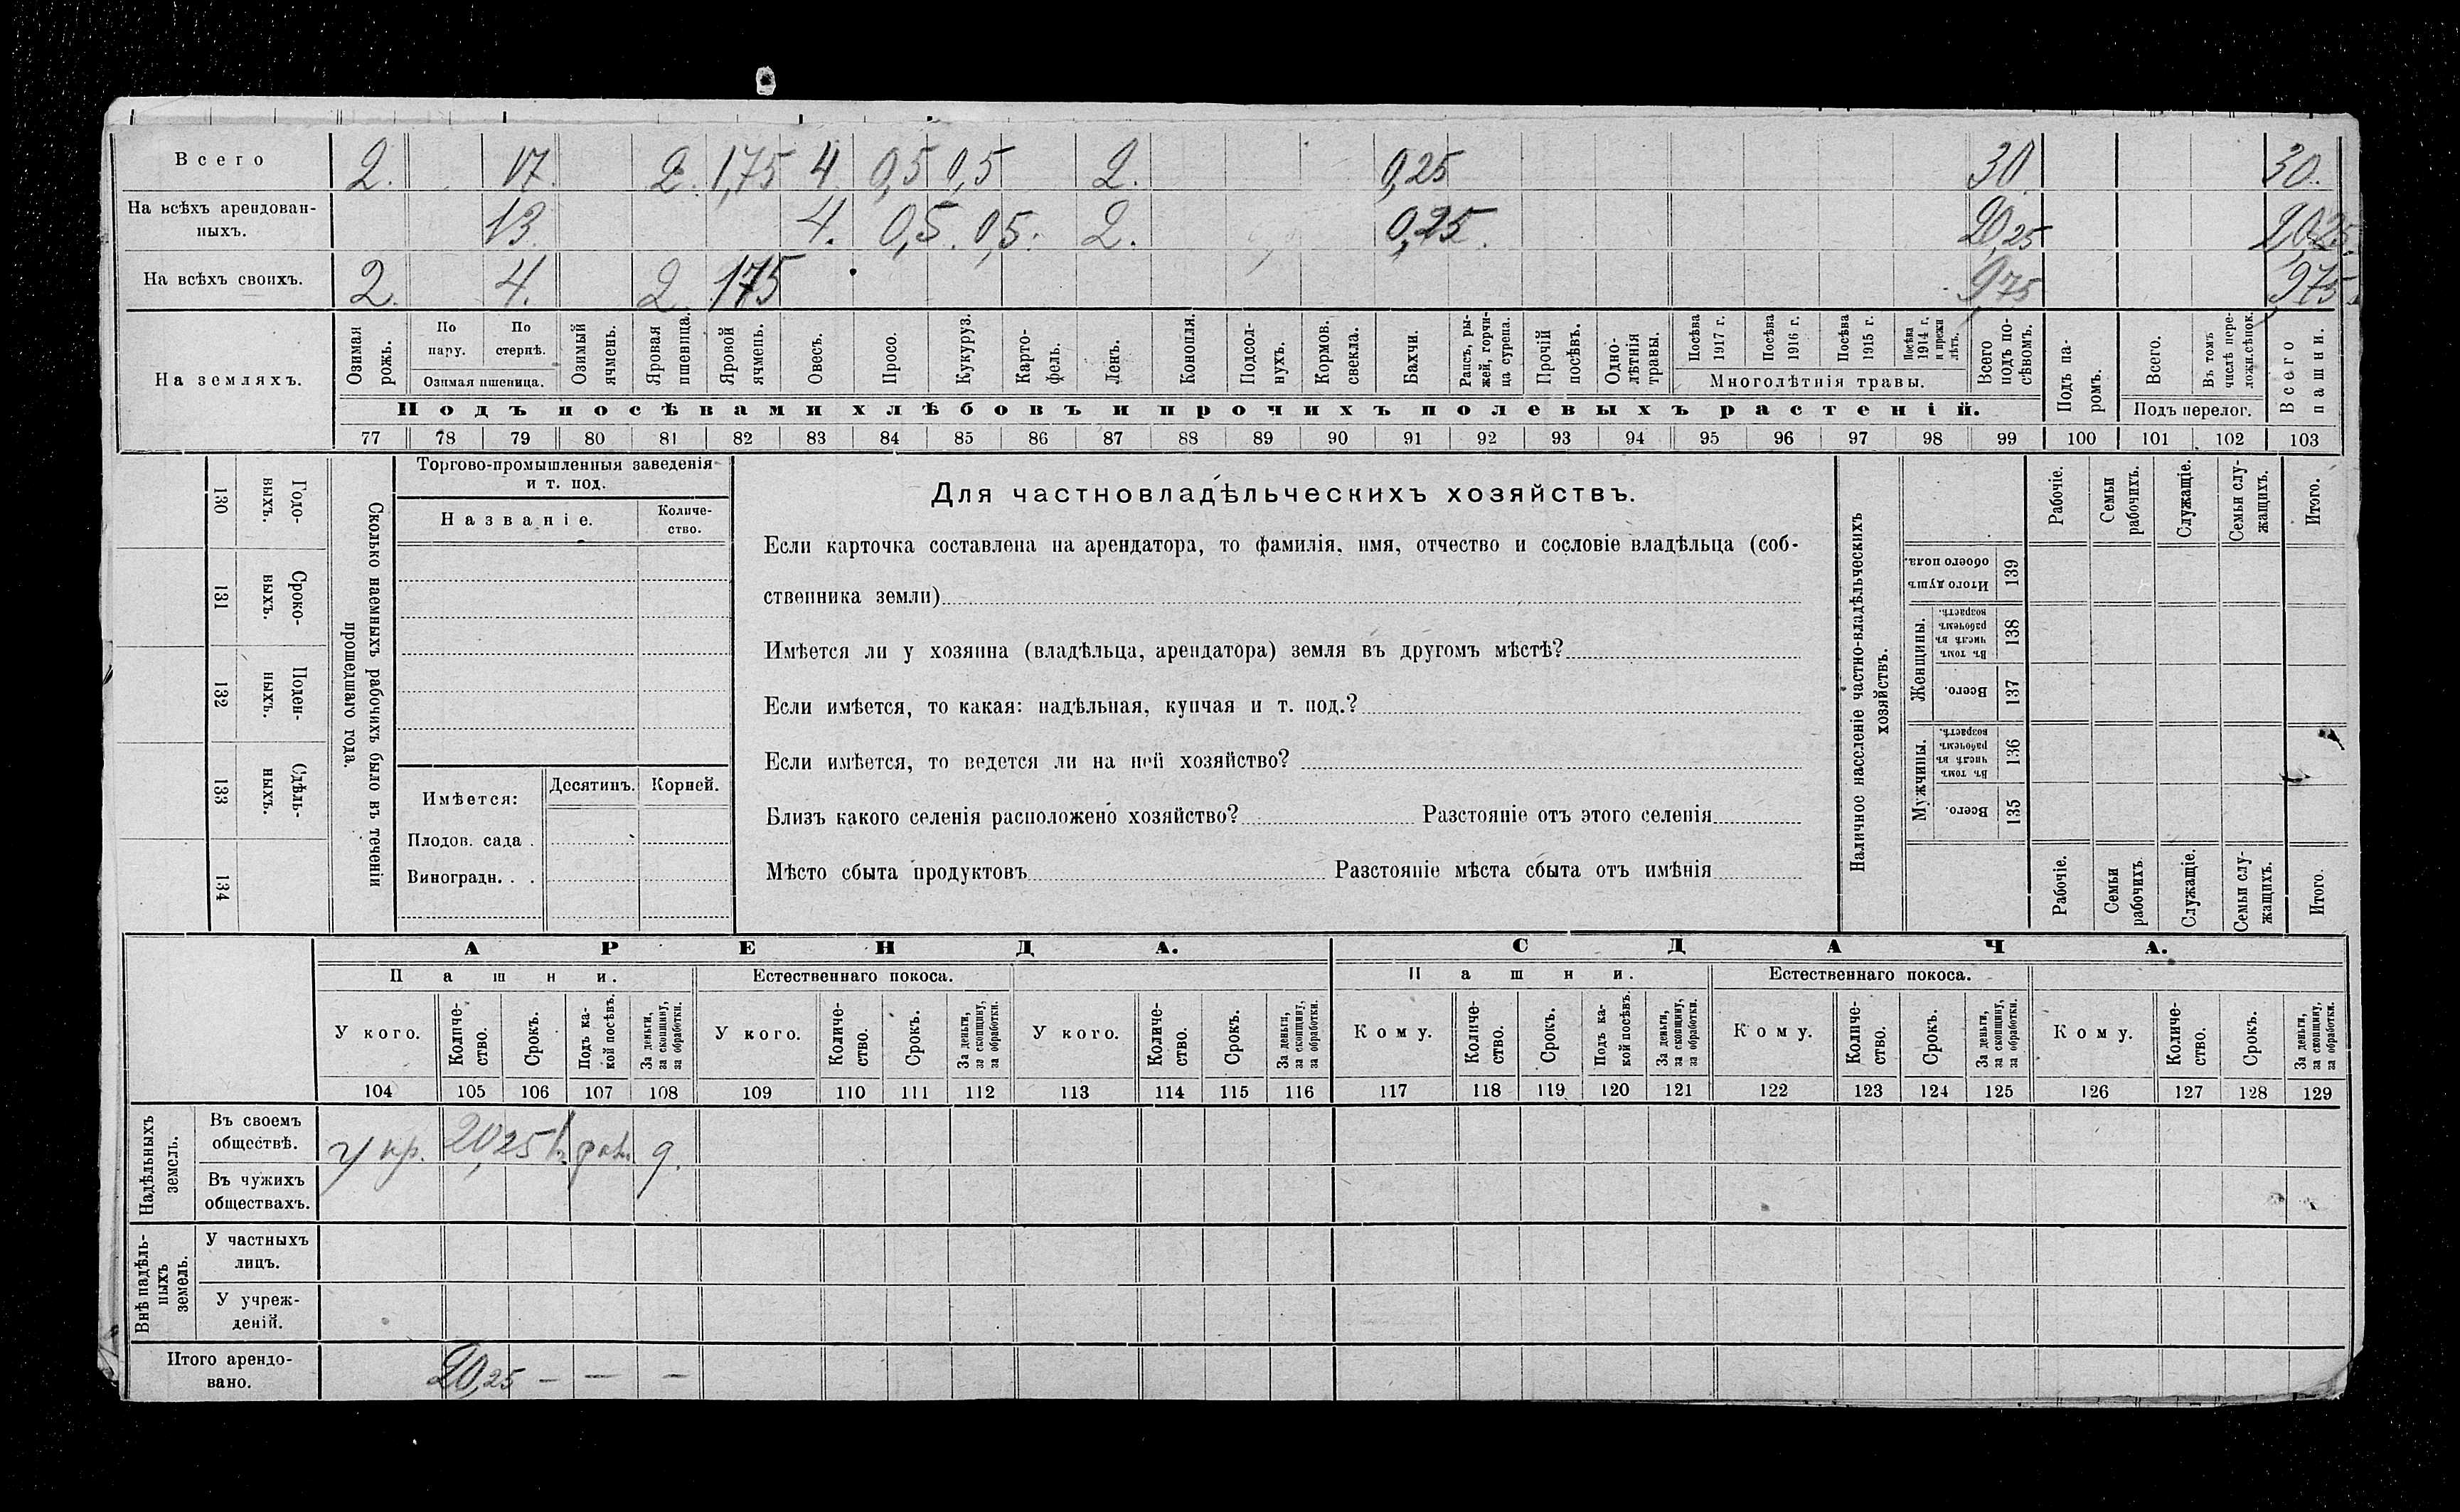 Всего 2. 17. 2. 1,75 4 0,5 0,5 2. 0,25 30. 30.
На всѣхъ арендован-
ныхъ. 13. 4. 0,5. 0,5. 2. 0,25. 20,25 20,25.
На всѣхъ своихъ. 2. 4. 2. 1,75 9,75 9,75
На земляхъ.
Озимая рожь.
По пару.
По стернѣ.
Озимая пшеница.
Озимый ячмень.
Яровая пшеница.
Яровой ячмень.
Овесъ.
Просо.
Кукуруз.
Карто-
фель.
Ленъ.
Конопля.
Подсол-
нухъ.
Кормов.
свекла.
Бахчи.
Рапсъ, ры-
жей, горчи-
ца сурепа.
Прочій
посѣвъ.
Одно-
лѣтнія
травы.
Посѣва
1917 г.
Посѣва
1916 г.
Посѣва
1915 г.
Посѣва
1914 г.
и прежн
лѣтъ.
Многолѣтнія травы.
Всего
подъ по-
сѣвомъ.
Подъ посѣвами хлѣбовъ и прочихъ полевыхъ растеній.
Подъ па-
ромъ.
Всего.
Въ томъ
числѣ пере-
ложн.сѣнок.
Подъ перелог.
Всего
пашни.
77 78 79 80 81 82 83 84 85 86 87 88 89 90 91 92 93 94 95 96 97 98 99 100 101 102 103
130 Годо-
выхъ.
131 Сроко-
выхъ.
132 Поден-
ныхъ.
133 Сдѣль-
ныхъ.
134
Сколько наемныхъ рабочихъ было въ теченіи
прошедшаго года.
Торгово-промышленныя заведенія
и т. под.
Названіе.
Количе-
ство.
Имѣется:
Десятинъ. Корней.
Плодов. сада .
Виноградн. . .
Для частновладѣльческихъ хозяйствъ.
Если карточка составлена на арендатора, то фамилія, имя, отчество и сословіе владѣльца (соб-
ственника земли)
Имѣется ли у хозяина (владѣльца, арендатора) земля въ другомъ мѣстѣ?
Если имѣется, то какая: надѣльная, купчая и т. под.?
Если имѣется, то ведется ли на ней хозяйство?
Близъ какого селенія расположено хозяйство? Разстояніе отъ этого селенія
Мѣсто сбыта продуктовъ Разстояніе мѣста сбыта отъ имѣнія
Наличное населеніе частно-владѣльческихъ
хозяйствъ.
Рабочіе.
Семьи
рабочихъ.
Служащіе.
Семьи слу-
жащихъ.
Итого.
Итого душъ
обоего пола. 139
Женщины.
Въ томъ
числѣ въ
рабочемъ
возрастѣ. 138
Всего. 137
Мужчины.
Въ томъ
числѣ въ
рабочемъ
возрастѣ. 136
Всего. 135
Рабочіе.
Семьи
рабочихъ.
Служащіе.
Семьи слу-
жащихъ.
Итого.
АРЕНДА. СДАЧА.
Пашни. Естественнаго покоса. Пашни. Естественнаго покоса.
У кого.
Количе-
ство.
Срокъ.
Подъ ка-
кой посѣвъ.
За деньги,
за скопщину,
за обработки.
У кого.
Количе-
ство.
Срокъ.
За деньги,
за скопщину,
за обработки.
У кого.
Количе-
ство.
Срокъ.
За деньги,
за скопщину,
за обработки.
Кому.
Количе-
ство.
Срокъ.
Подъ ка-
кой посѣвъ.
За деньги,
за скопщину,
за обработки.
Кому.
Количе-
ство.
Срокъ.
За деньги,
за скопщину,
за обработки.
Кому.
Количе-
ство.
Срокъ.
За деньги,
за скопщину,
за обработки.
104 105 106 107 108 109 110 111 112 113 114 115 116 117 118 119 120 121 122 123 124 125 126 127 128 129
Надѣльныхъ
земель.
Въ своемъ
обществѣ. у кр. 20,25 д.
Въ чужихъ
обществахъ.
Внѣ надѣль-
ныхъ
земель.
У частныхъ
лицъ.
У учреж-
деній.
Итого арендо-
вано. 20,25 — — —